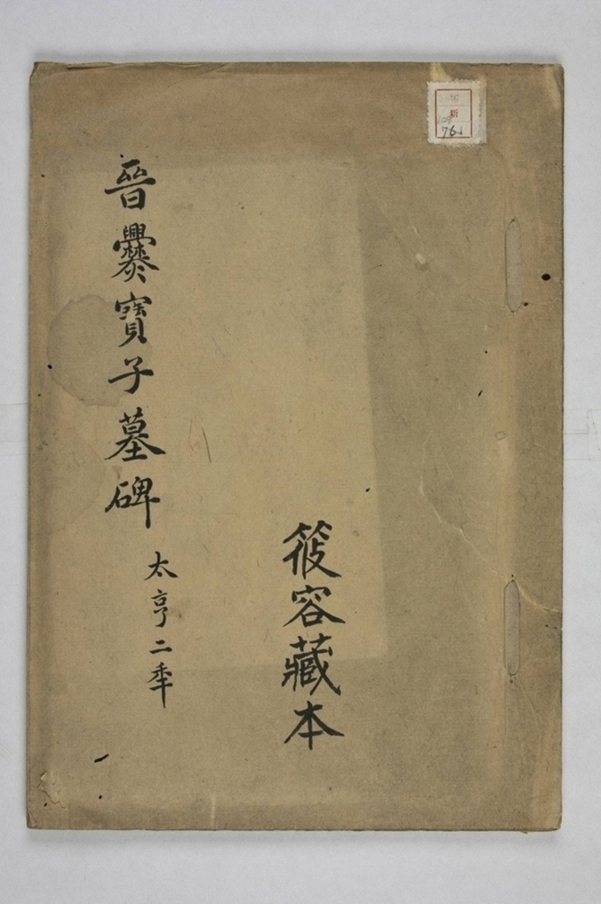 晉爨寶子墓碑
太亨二年
筱容藏本
新
761